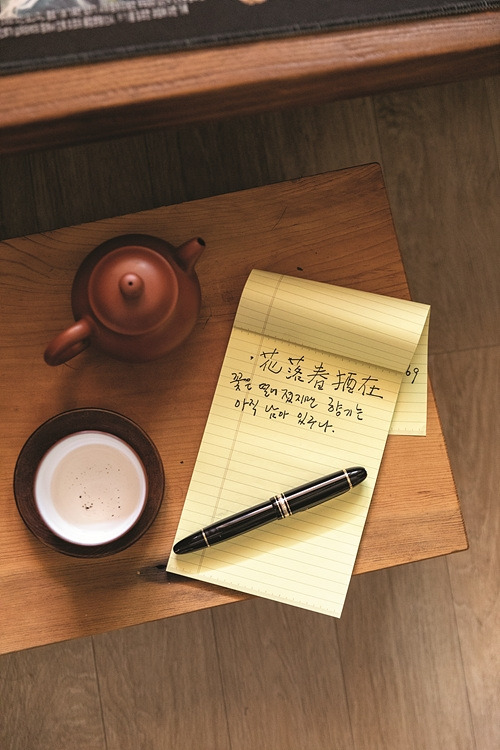 · 花落春猶在
69
꽃은 떨어 졌지만 향기는
아직 남아 있구나.